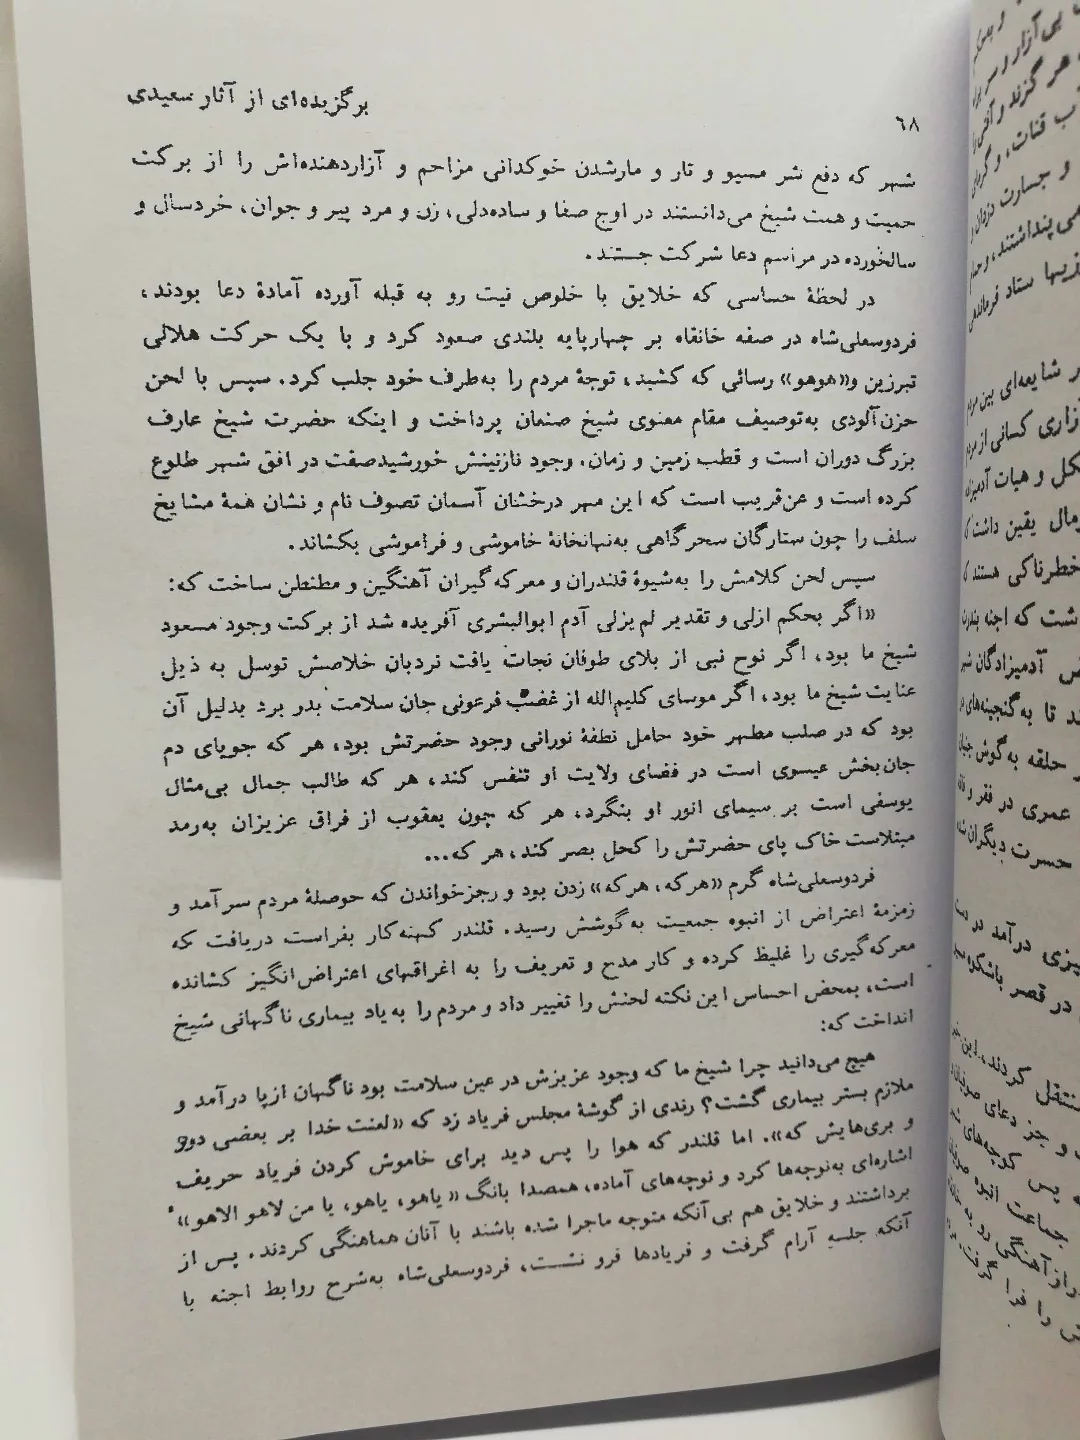 ۶۸
برگزیده‌ای از آثار سعیدی
شهر که دفع شر مسیو و تار و مارشدن خوکدانی مزاحم و آزاردهنده‌اش را از برکت
حمیت و همت شیخ می‌دانستند در اوج صفا و ساده‌دلی، زن و مرد پیر و جوان، خردسال و
سالخورده در مراسم دعا شرکت جستند.
در لحظهٔ حساسی که خلایق با خلوص نیت رو به قبله آورده آمادهٔ دعا بودند،
فردوسعلی‌شاه در صفه خانقاه بر چهارپایه بلندی صعود کرد و با یک حرکت هلالی
تبرزین و«هوهو» رسائی که کشید، توجهٔ مردم را به‌طرف خود جلب کرد. سپس با لحن
حزن‌آلودی به‌توصیف مقام معنوی شیخ صنعان پرداخت و اینکه حضرت شیخ عارف
بزرگ دوران است و قطب زمین و زمان. وجود نازنینش خورشیدصفت در افق شهر طلوع
کرده است و عن‌قریب است که این مهر درخشان آسمان تصوف نام و نشان همهٔ مشایخ
سلف را چون ستارگان سحرگاهی به‌نهانخانهٔ خاموشی و فراموشی بکشاند.
سپس لحن کلامش را به‌شیوهٔ قلندران و معرکه‌گیران آهنگین و مطنطن ساخت که:
«اگر بحکم ازلی و تقدیر لم‌یزلی آدم ابوالبشری آفریده شد از برکت وجود مسعود
شیخ ما بود، اگر نوح نبی از بلای طوفان نجات یافت نردبان خلاصش توسل به ذیل
عنایت شیخ ما بود، اگر موسای کلیم‌الله از غضب فرعونی جان سلامت بدر برد بدلیل آن
بود که در صلب مطهر خود حامل نطفهٔ نورانی وجود حضرتش بود، هر که جویای دم
جان‌بخش عیسوی است در فضای ولایت او تنفس کند، هر که طالب جمال بی‌مثال
یوسفی است بر سیمای انور او بنگرد، هر که چون یعقوب از فراق عزیزان به‌رمد
مبتلاست خاک پای حضرتش را کحل بصر کند، هر که...
فردوسعلی‌شاه گرم «هرکه، هرکه» زدن بود و رجزخواندن که حوصلهٔ مردم سرآمد و
زمزمهٔ اعتراض از انبوه جمعیت به‌گوشش رسید. قلندر کهنه‌کار بفراست دریافت که
معرکه‌گیری را غلیظ کرده و کار مدح و تعریف را به اغراقهای اعتراض‌انگیز کشانده
است، بمحض احساس این نکته لحنش را تغییر داد و مردم را به‌یاد بیماری ناگهانی شیخ
انداخت که:
هیچ می‌دانید چرا شیخ ما که وجود عزیزش در عین سلامت بود ناگهان ازپا درآمد و
ملازم بستر بیماری گشت؟ رندی از گوشهٔ مجلس فریاد زد که «لعنت خدا بر بعضی دوو
و بری‌هایش که». اما قلندر که هوا را پس دید برای خاموش کردن فریاد حریف
اشاره‌ای به‌نوچه‌ها کرد و نوچه‌های آماده، همصدا بانگ «یاهو، یاهو، یا من لاهو الاهو»
برداشتند و خلایق هم بی‌آنکه متوجه ماجرا شده باشند با آنان هماهنگی کردند. پس از
آنکه جلسه آرام گرفت و فریادها فرو نشست، فردوسعلی‌شاه به‌شرح روابط اجنه با